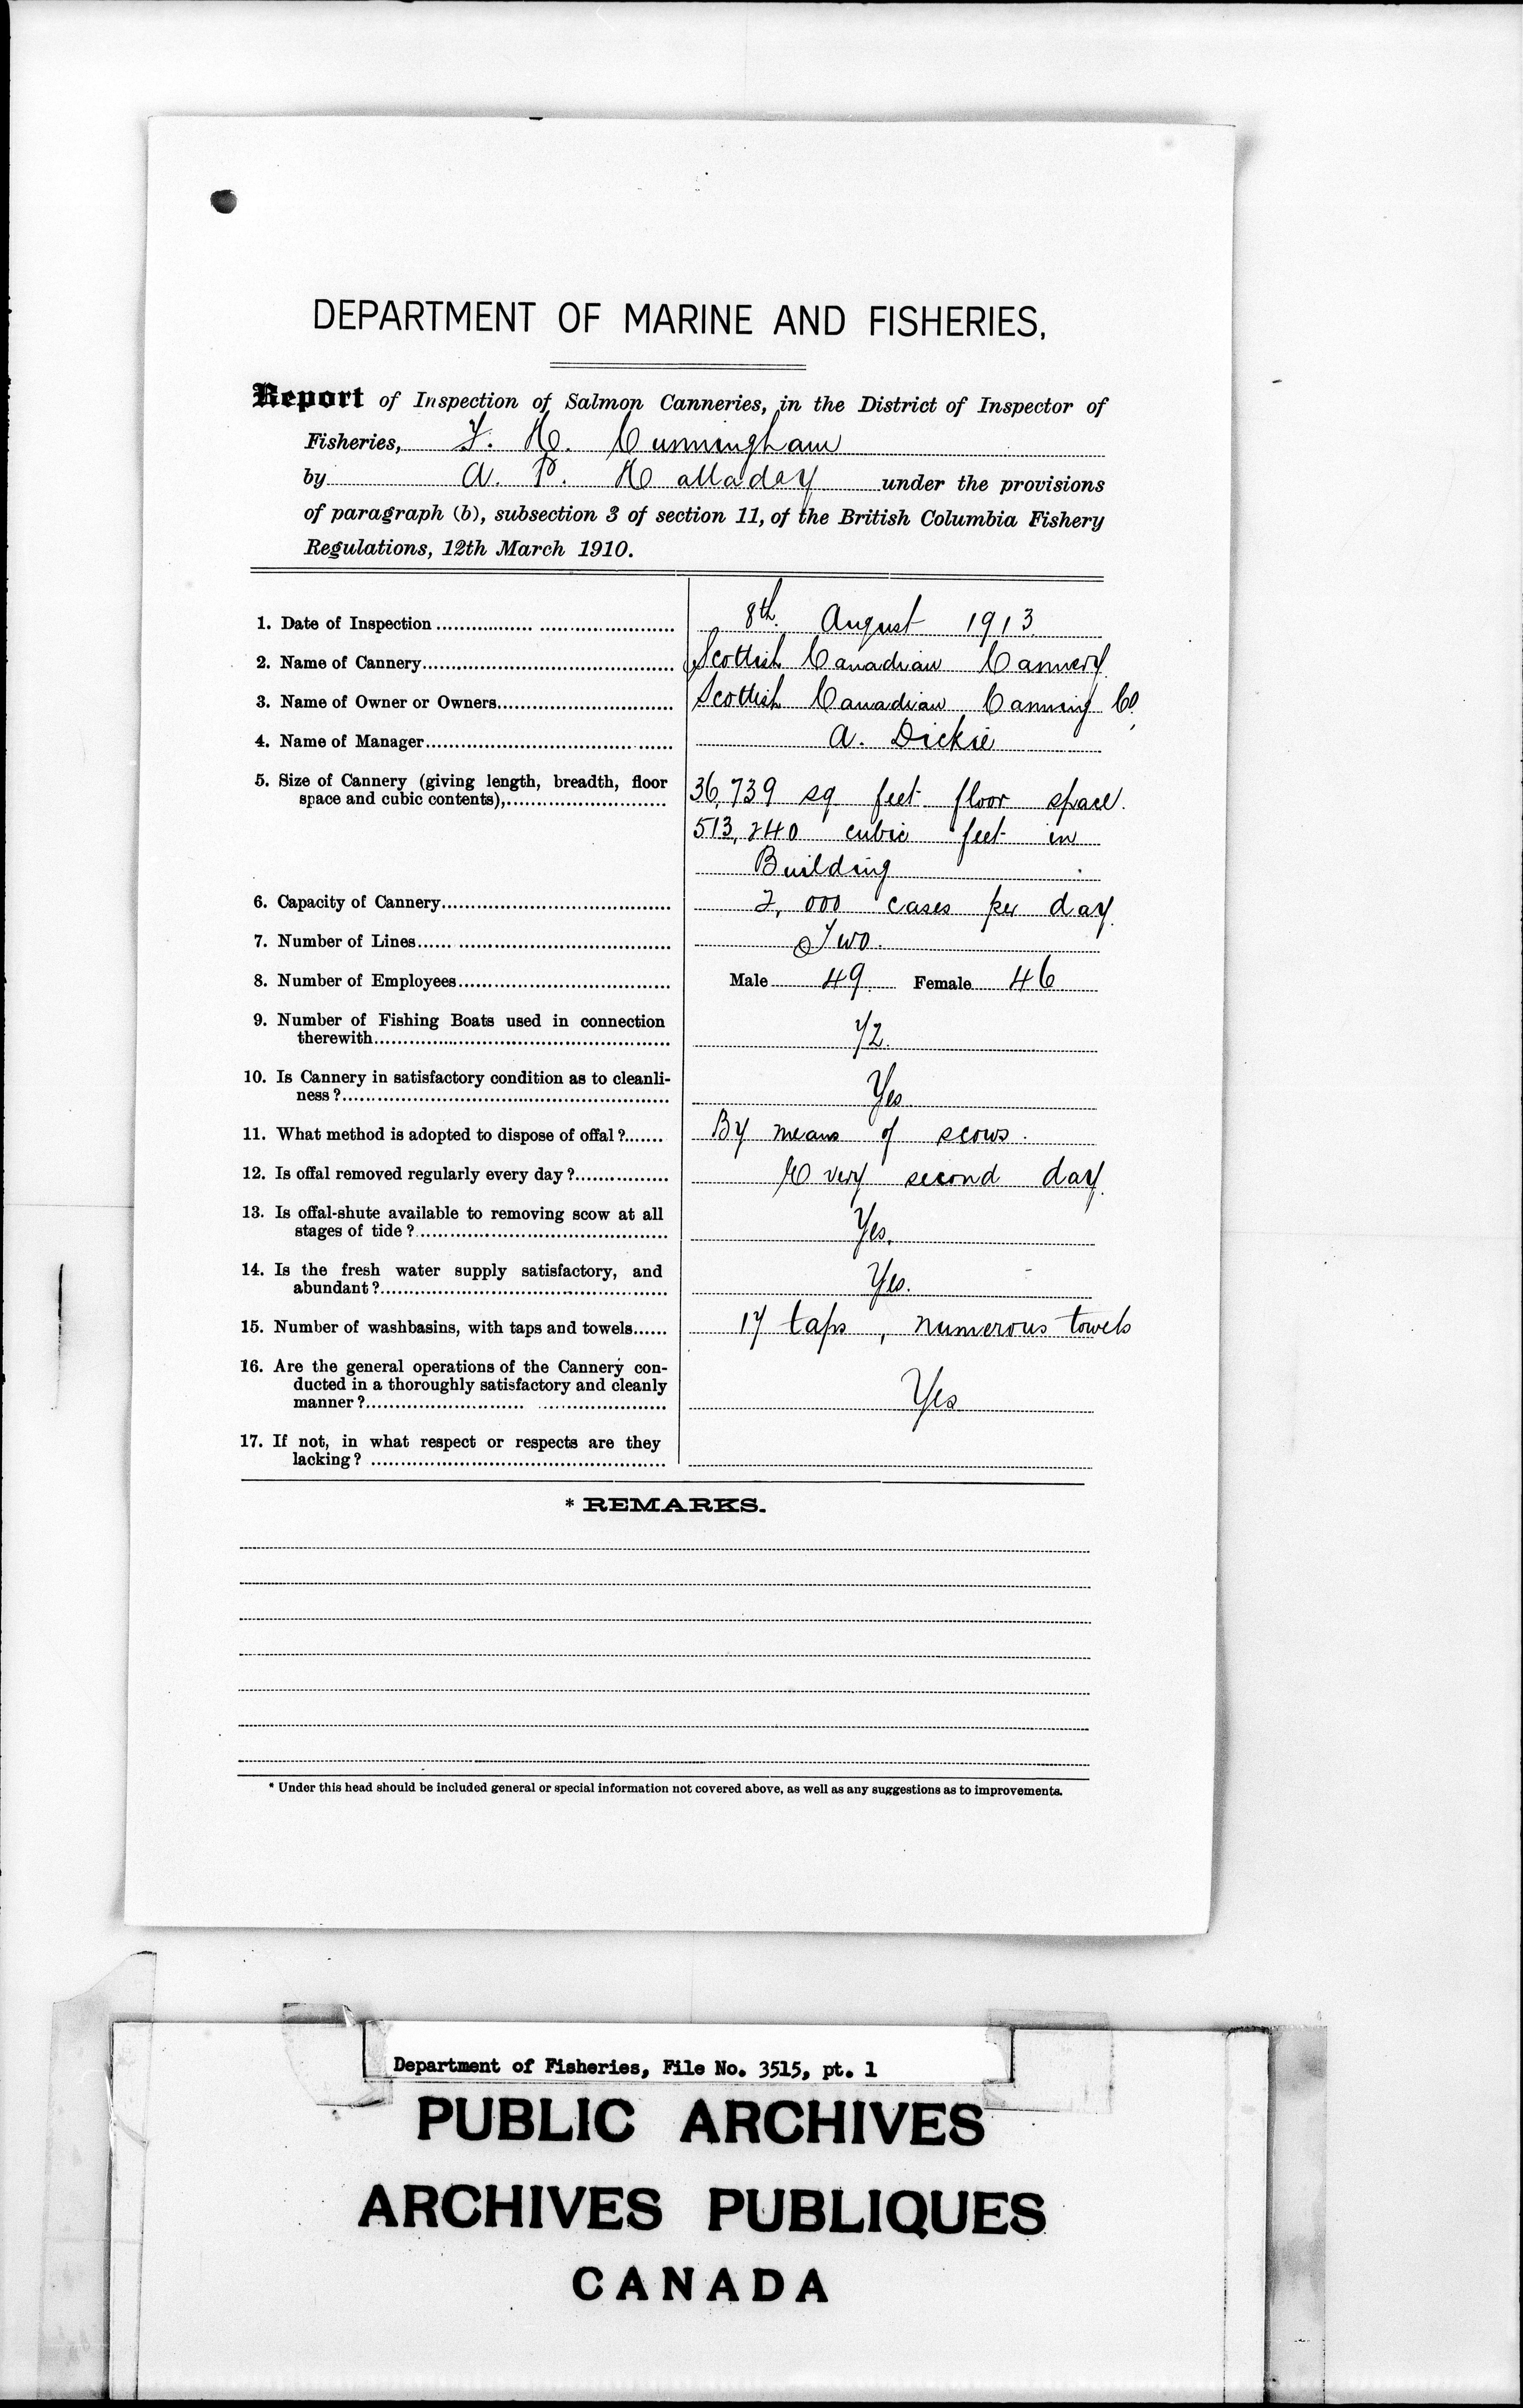 DEPARTMENT OF MARINE AND FISHERIES,
Report of Inspection of Salmon Canneries, in the District of Inspector of
Fisheries, F. H. Cunningham
by A. P. Halladay under the provisions
of paragraph (b), subsection 3 of section 11, of the British Columbia Fishery
Regulations, 12th March 1910.
1. Date of Inspection 8th. August 1913
2. Name of Cannery Scottish Canadian Cannery
3. Name of Owner or Owners Scottish Canadian Canning Co.
4. Name of Manager A. Dickie
5. Size of Cannery (giving length, breadth, floor
space and cubic contents), 36,739 sq feet floor space.
513,240 cubic feet in
Building
6. Capacity of Cannery 2,000 cases per day.
7. Number of Lines Two.
8. Number of Employees Male 49 Female 46
9. Number of Fishing Boats used in connection
therewith 72.
10. Is Cannery in satisfactory condition as to cleanli-
ness? Yes
11. What method is adopted to dispose of offal? By means of scows.
12. Is offal removed regularly every day? Every second day.
13. Is offal-shute available to removing scow at all
stages of tide? Yes.
14. Is the fresh water supply satisfactory, and
abundant? Yes.
15. Number of washbasins, with taps and towels 17 taps, numerous towels
16. Are the general operations of the Cannery con-
ducted in a thoroughly satisfactory and cleanly
manner? Yes
17. If not, in what respect or respects are they
lacking?
* REMARKS.
* Under this head should be included general or special information not covered above, as well as any suggestions as to improvements.
Department of Fisheries, File No. 3515, pt. 1
PUBLIC ARCHIVES
ARCHIVES PUBLIQUES
CANADA